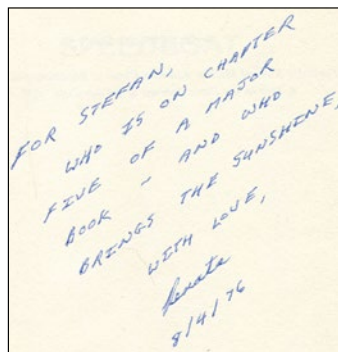 FOR STEFAN,
WHO IS ON CHAPTER
FIVE OF A MAJOR
BOOK - AND WHO
BRINGS THE SUNSHINE,
WITH LOVE,
Renata
8/4/76